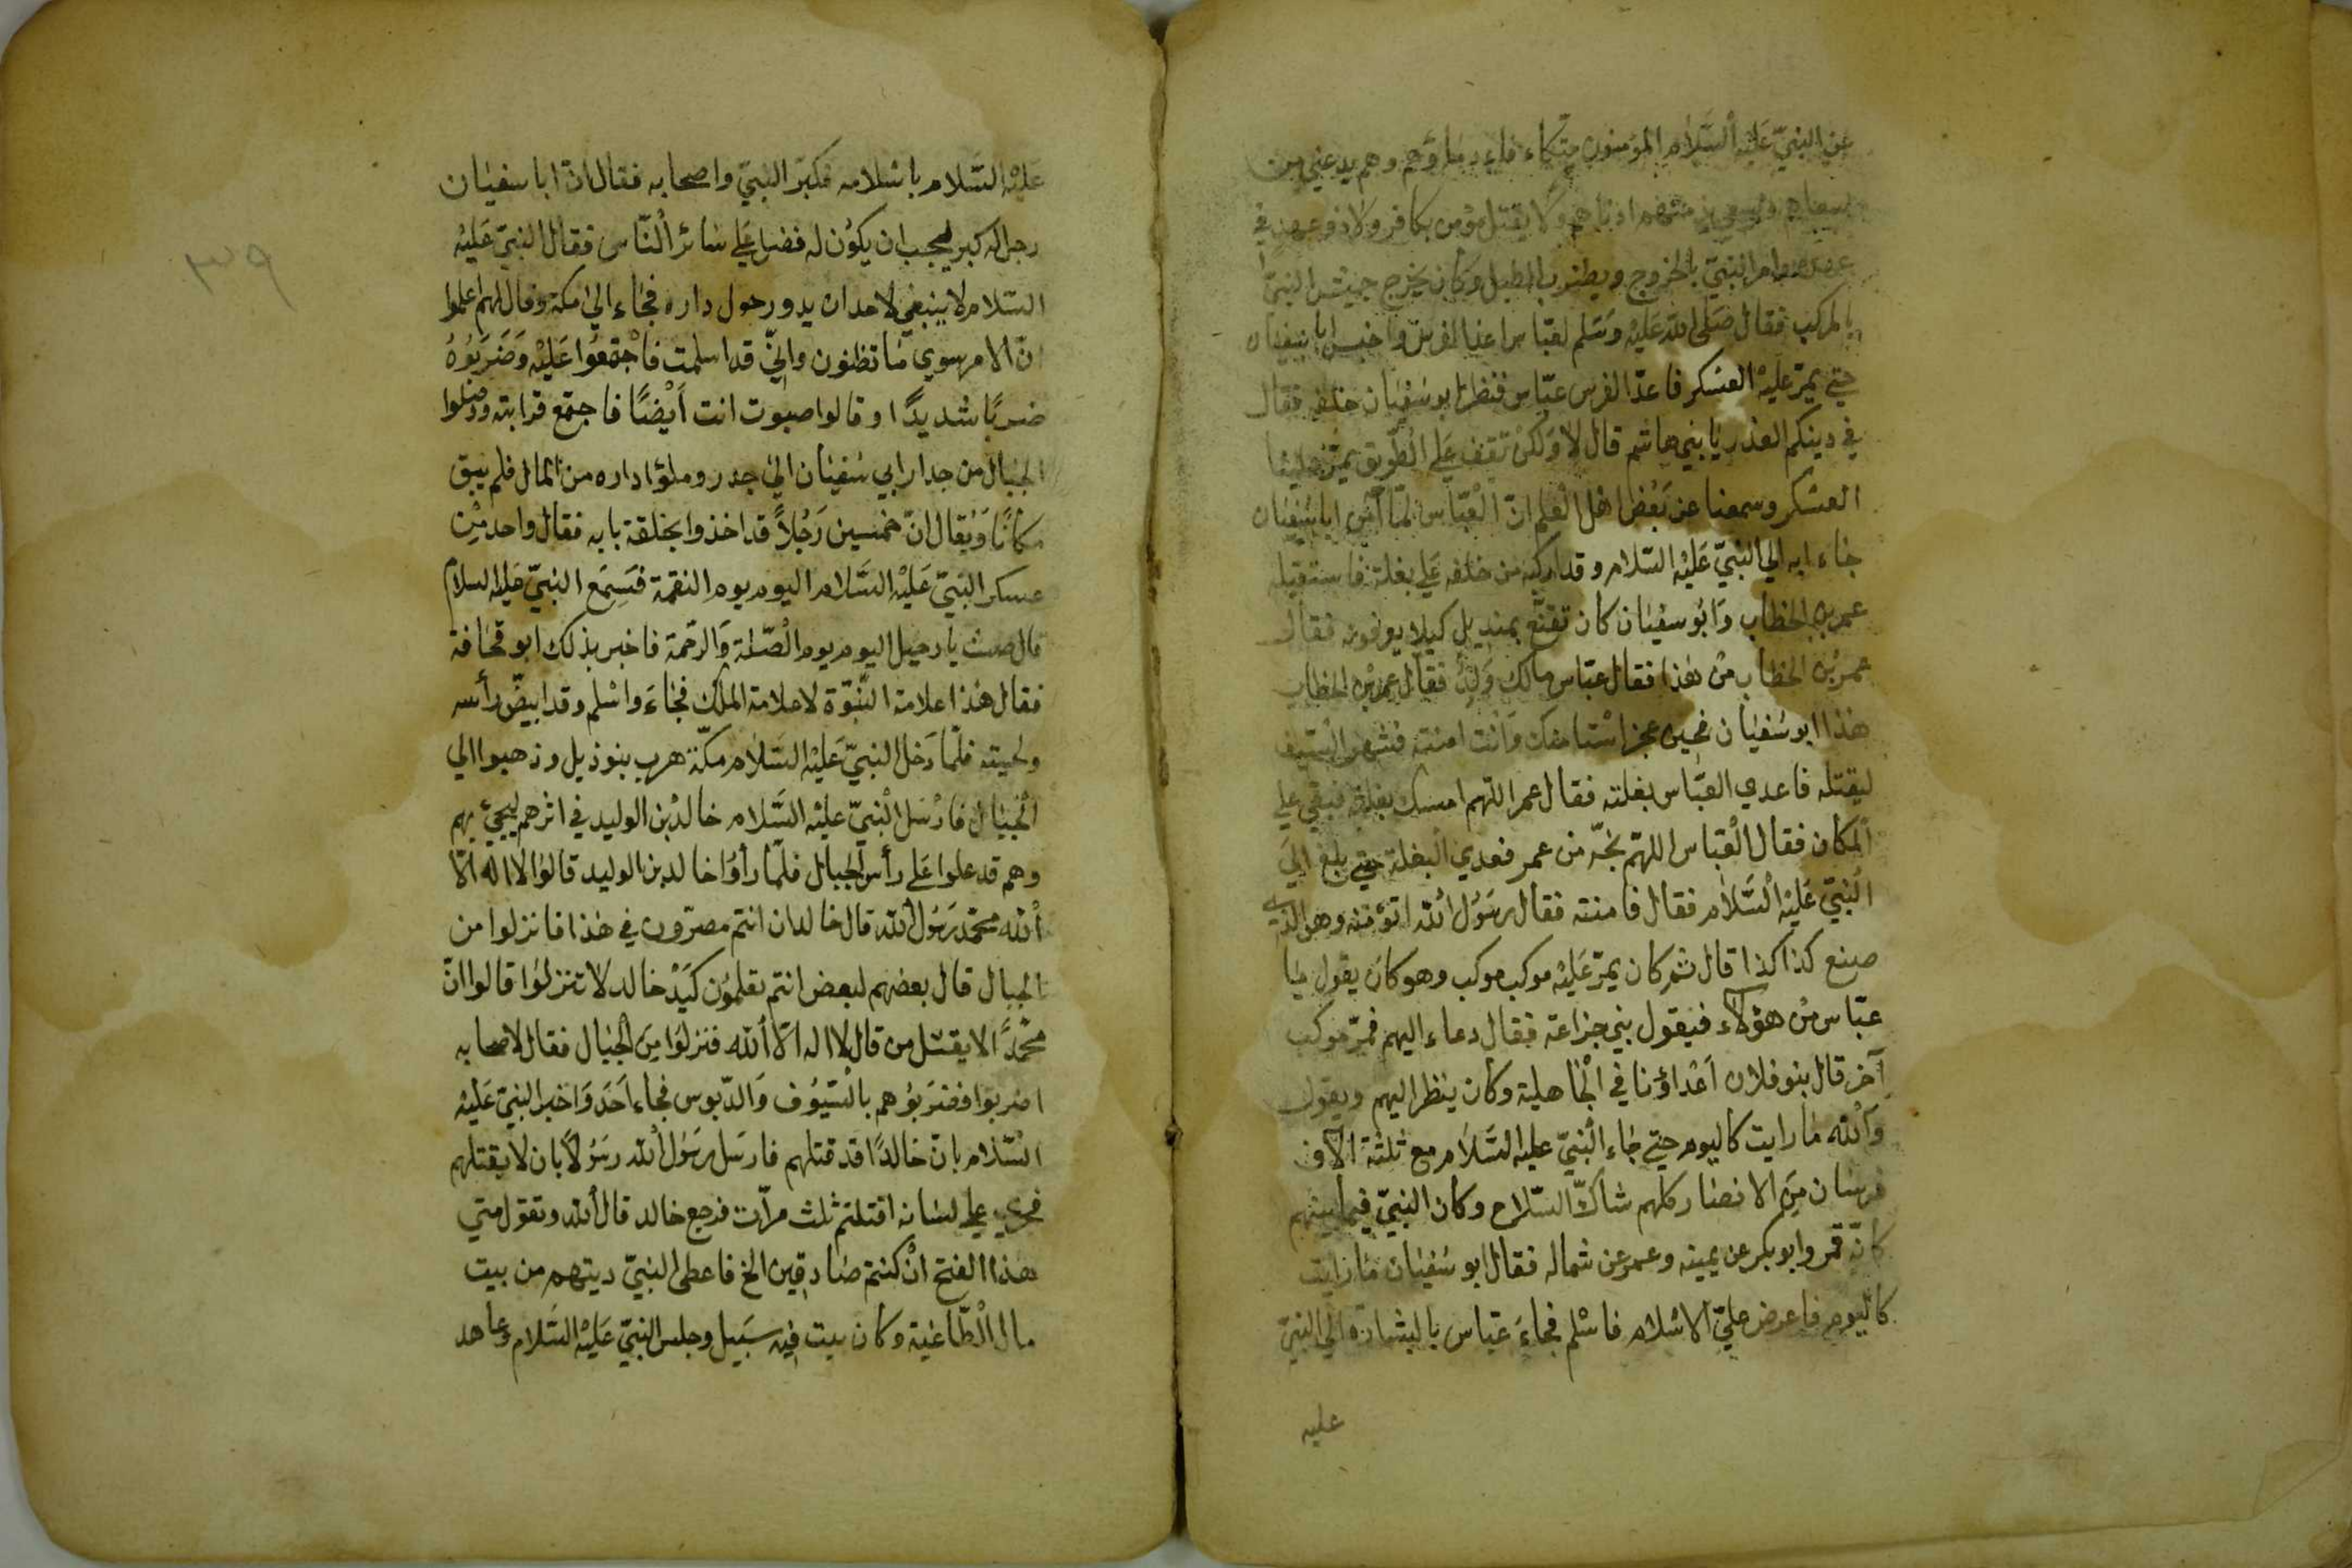 عن النبيّ عَليْه السَّلام المؤمنون تتكاء فاء دماؤهم وهم يد على من
سواهم ويسعى بذمتهم ادناهم ولا يقتل مؤمن بكافر ولا ذو عهد في
عهده امر النبيّ بالخروج ويضرب الطبل وكان يخرج جيش النبيّ
بالمركب فقال صَلى الله عَليْه وَسَلم لعبّاس اعد الفرس واحبس ابا سفيان
حتى يمرّ عليْه العسْكر فاعدّا الفرس عبّاس فنظر ابو سُفيَان خلفه فقال
في دينكم العذر يا بني هاشم قال لا وَلكن تقف عَلى الطّريق يمرّ علينا
العسْكر وسمعنا عن بَعْض اهْل العْلم انّ العْبّاس لمّا أمن ابا سُفيان
جاء به الى النبيّ عَليْه السّلام وقد اركبه من خلفه عَلى بغلته فاستقبله
عمر بن الخطاب وَابو سفيان كان تقنّع بمنديل كيلا يعرفونه فقال
عمر بن الخطاب منْ هٰذا فقال عبّاس مالك وَله فقال عمر بن الخطاب
هٰذا ابو سُفيَان فحين عجز اسْتامنك وَانت امنته فشهر السّيف
ليقتله فاعدي العبّاس بغلته فقال عمر اللّهم امسك بغلته فبقى على
المكان فقال العْبّاس اللهمّ نجّه من عمر فعدي البغلة حتى بلغ الى
النبيّ عَليْه السَّلام فقال فامنته فقال رسَوُل الله اتؤمنه وهو الذي
صنع كذا كذا قال ثم كان يمرّ عَليْه موكب موكب وهو كان يقول يا
عبّاس منْ هؤلاء فيقول بني خزاعة فقال دعاء اليهم فمرّ موكب
آخر قال بنو فلان اعْداؤنا في الجْاهلية وكان ينظر اليهم ويقول
وَالله ما رايت كاليوم حتى جاء النْبيّ عليه السَّلام مع ثلثة آلاف
فرسان مِنَ الانصار كلهم شاكّ السّلاح وكان النبيّ فيما بينهم
كانّه قمر وابو بكر عن يمينه وعمر عن شماله فقال ابو سُفيَان ما رايت
كاليوم فاعرض علىّ الاسْلام فاسْلم فجاءَ عبّاس بالبشارة الى النبيّ
عليه
٣٩
عَليْه السَّلام باسْلامه فكبّر النبيّ واصحابه فقال انّ ابا سفيَان
رجل له كبر يحبّ ان يكون له فضل عَلى سَائر النّاس فقال النبيّ عَليْه
السّلام لا ينبغي لاحد ان يدور حول داره فجَاء الى مكة وقال لهم اعلموا
انّ الامر سوي مَا تظنون وانّي قد اسلمت فاجْتمعُوا عَليْه وَضَربوُهُ
ضربًا شديدًا وقالوا صبوت انت أيْضًا فاجتمع قرابته ووضلوا
الجبَال من جدار ابي سُفيَان الى جدر وملؤا داره من المال فلم يبق
مكانًا وَيُقال انّ خمسين رَجُلاً قد اخذوا بخلقة بابه فقال واحد مِنْ
عسكر النبيّ عَليْه السَّلام اليوم يوم النقمة فسَمِع النبيّ عَليْه السلام
قال صمت يا رحيل اليوم يوم الصْلة وَالرّحمَة فاخبر بذلك ابو قحَافة
فقال هٰذا علامة النّبوّة لا علامة الملك فجَاءَ واسْلم وقد ابيضّ رأسه
ولحيته فلمّا دَخل النبيّ عَليْه السَّلام مكّة هرب بنو ذيل وذهبوا الى
الجْبَال فارْسَل النْبيّ عليْه السَّلام خالدْ بن الوليد في اثرهم ليجيئ بهم
وهم قد علوا عَلى رأس الجبال فلمّا رأوْا خالد بن الوليد قالوُا لا اله الاّ
الله محمّد رَسُول الله قال خالد ان انتم مصرّون في هٰذا فانزلوا من
الجبال قال بعضهم لبعض انتم تعلموُن كيْد خالد لا تنزلوُا قالوا انّ
محمّدًا لا يقتل من قال لا اله الاّ الله فنزلوُا مِنَ الجْبَال فقال لاصحابه
اضربوا فضَربُوهم بالسّيوُف وَالدّبوس فجاء احَد وَاخبر النبيّ عَليْه
السّلام بانّ خالدًا قد قتلهم فارسَل رسَوُل الله رسَوُلاً بان لا يقتلهم
فجري على لسَانه اقتلتم ثلث مرّات فرجع خالد قال الله وتقول متى
هٰذا الفتح انْ كنتم صَادقين الخ فاعطى النبيّ ديتهم من بيت
مال الطّاغية وكان بيت فيه سَبيل وجلس النبيّ عَليْه السَّلام وعاهد